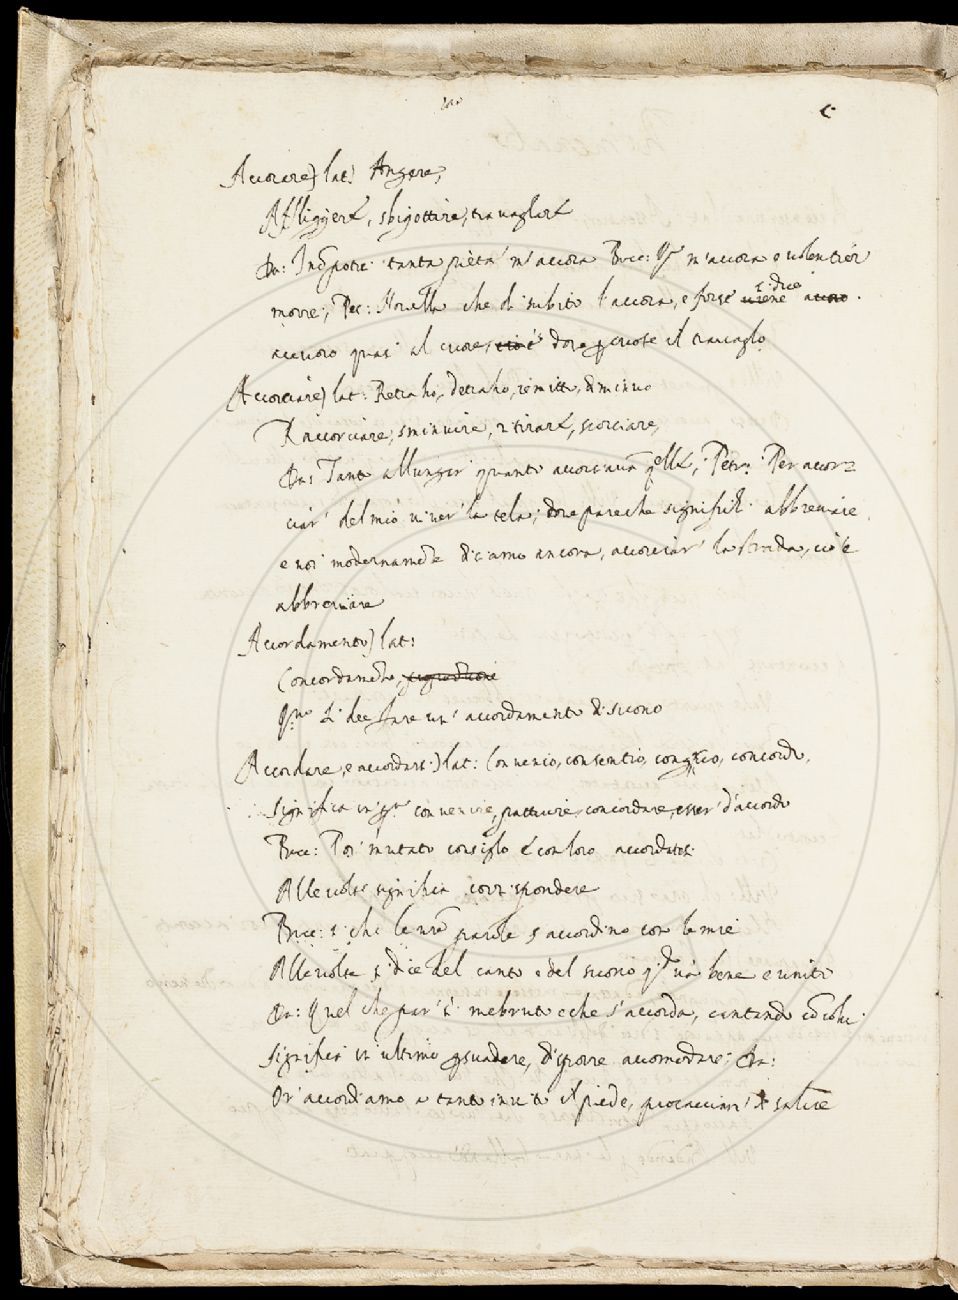 Accorare) lat: Angere,
Affligger&, sbigottire, travaglar&
Da: tanta pietà m'accora Bocc: m'accora e volentier
morrei, Pet: che di subito l'accora, e forse si dice
accuoro quasi al cuore, cioè dove percuote il travaglo
Accorciare) lat: Retraho, detraho, remitto, diminuo
Raccorciare, sminuire, ritirar&, scorciare,
Da: Tanto allungar quanto accorciavā q̃ll&, Petr: Per accor=
ciar' del mio viver' la tela, dove pare che significhi abbreviare
e noi modernamēte diciamo ancora, accorciar' la strada, cioè
abbreviare
Accordamento) lat:
Concordamēto,
si dee fare un' accordamento di suono
Accordare, e accordarsi) lat: Convenio, consentio, congruo, concordo,
Significa in convenire, pattuire, concordare, esser' d'accordo
Bocc: Poi mutato consiglo & con loro accordatosi
Alle volte significa corrispondere
Bocc: si che le vr̃e parole s'accordino con le mie
Alle volte si dice del canto e del suono và bene e unito
Da: Quel che par' sì membruto e che s'accorda, cantando cō colui
Significa in ultimo persuadere, disporre accomodare: Da:
Or' accordiamo a tanto invito il piede, procacciam' di salire